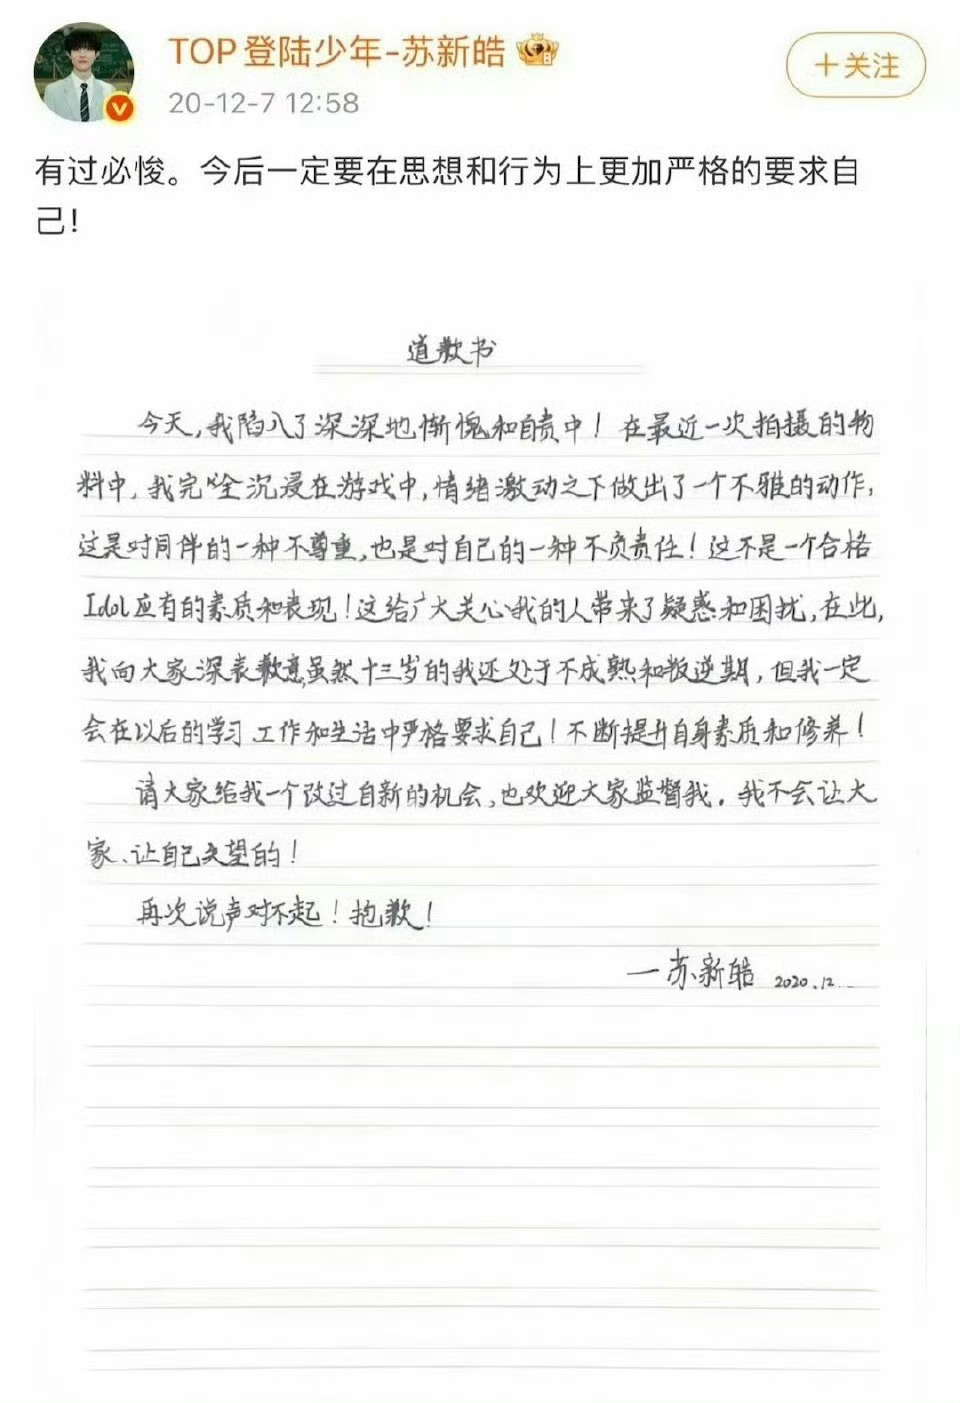 TOP登陆少年-苏新皓
20-12-7 12:58
+关注
有过必悛。今后一定要在思想和行为上更加严格的要求自
己！
道歉书
今天,我陷入了深深地惭愧和自责中！在最近一次拍摄的物
料中,我完全沉浸在游戏中,情绪激动之下做出了一个不雅的动作,
这是对同伴的一种不尊重,也是对自己的一种不负责任！这不是一个合格
Idol应有的素质和表现！这给广大关心我的人带来了疑惑和困扰,在此,
我向大家深表歉意,虽然十三岁的我还处于不成熟和叛逆期,但我一定
会在以后的学习、工作和生活中严格要求自己！不断提升自身素质和修养！
请大家给我一个改过自新的机会,也欢迎大家监督我。我不会让大
家、让自己失望的！
再次说声对不起！抱歉！
—苏新皓 2020.12.